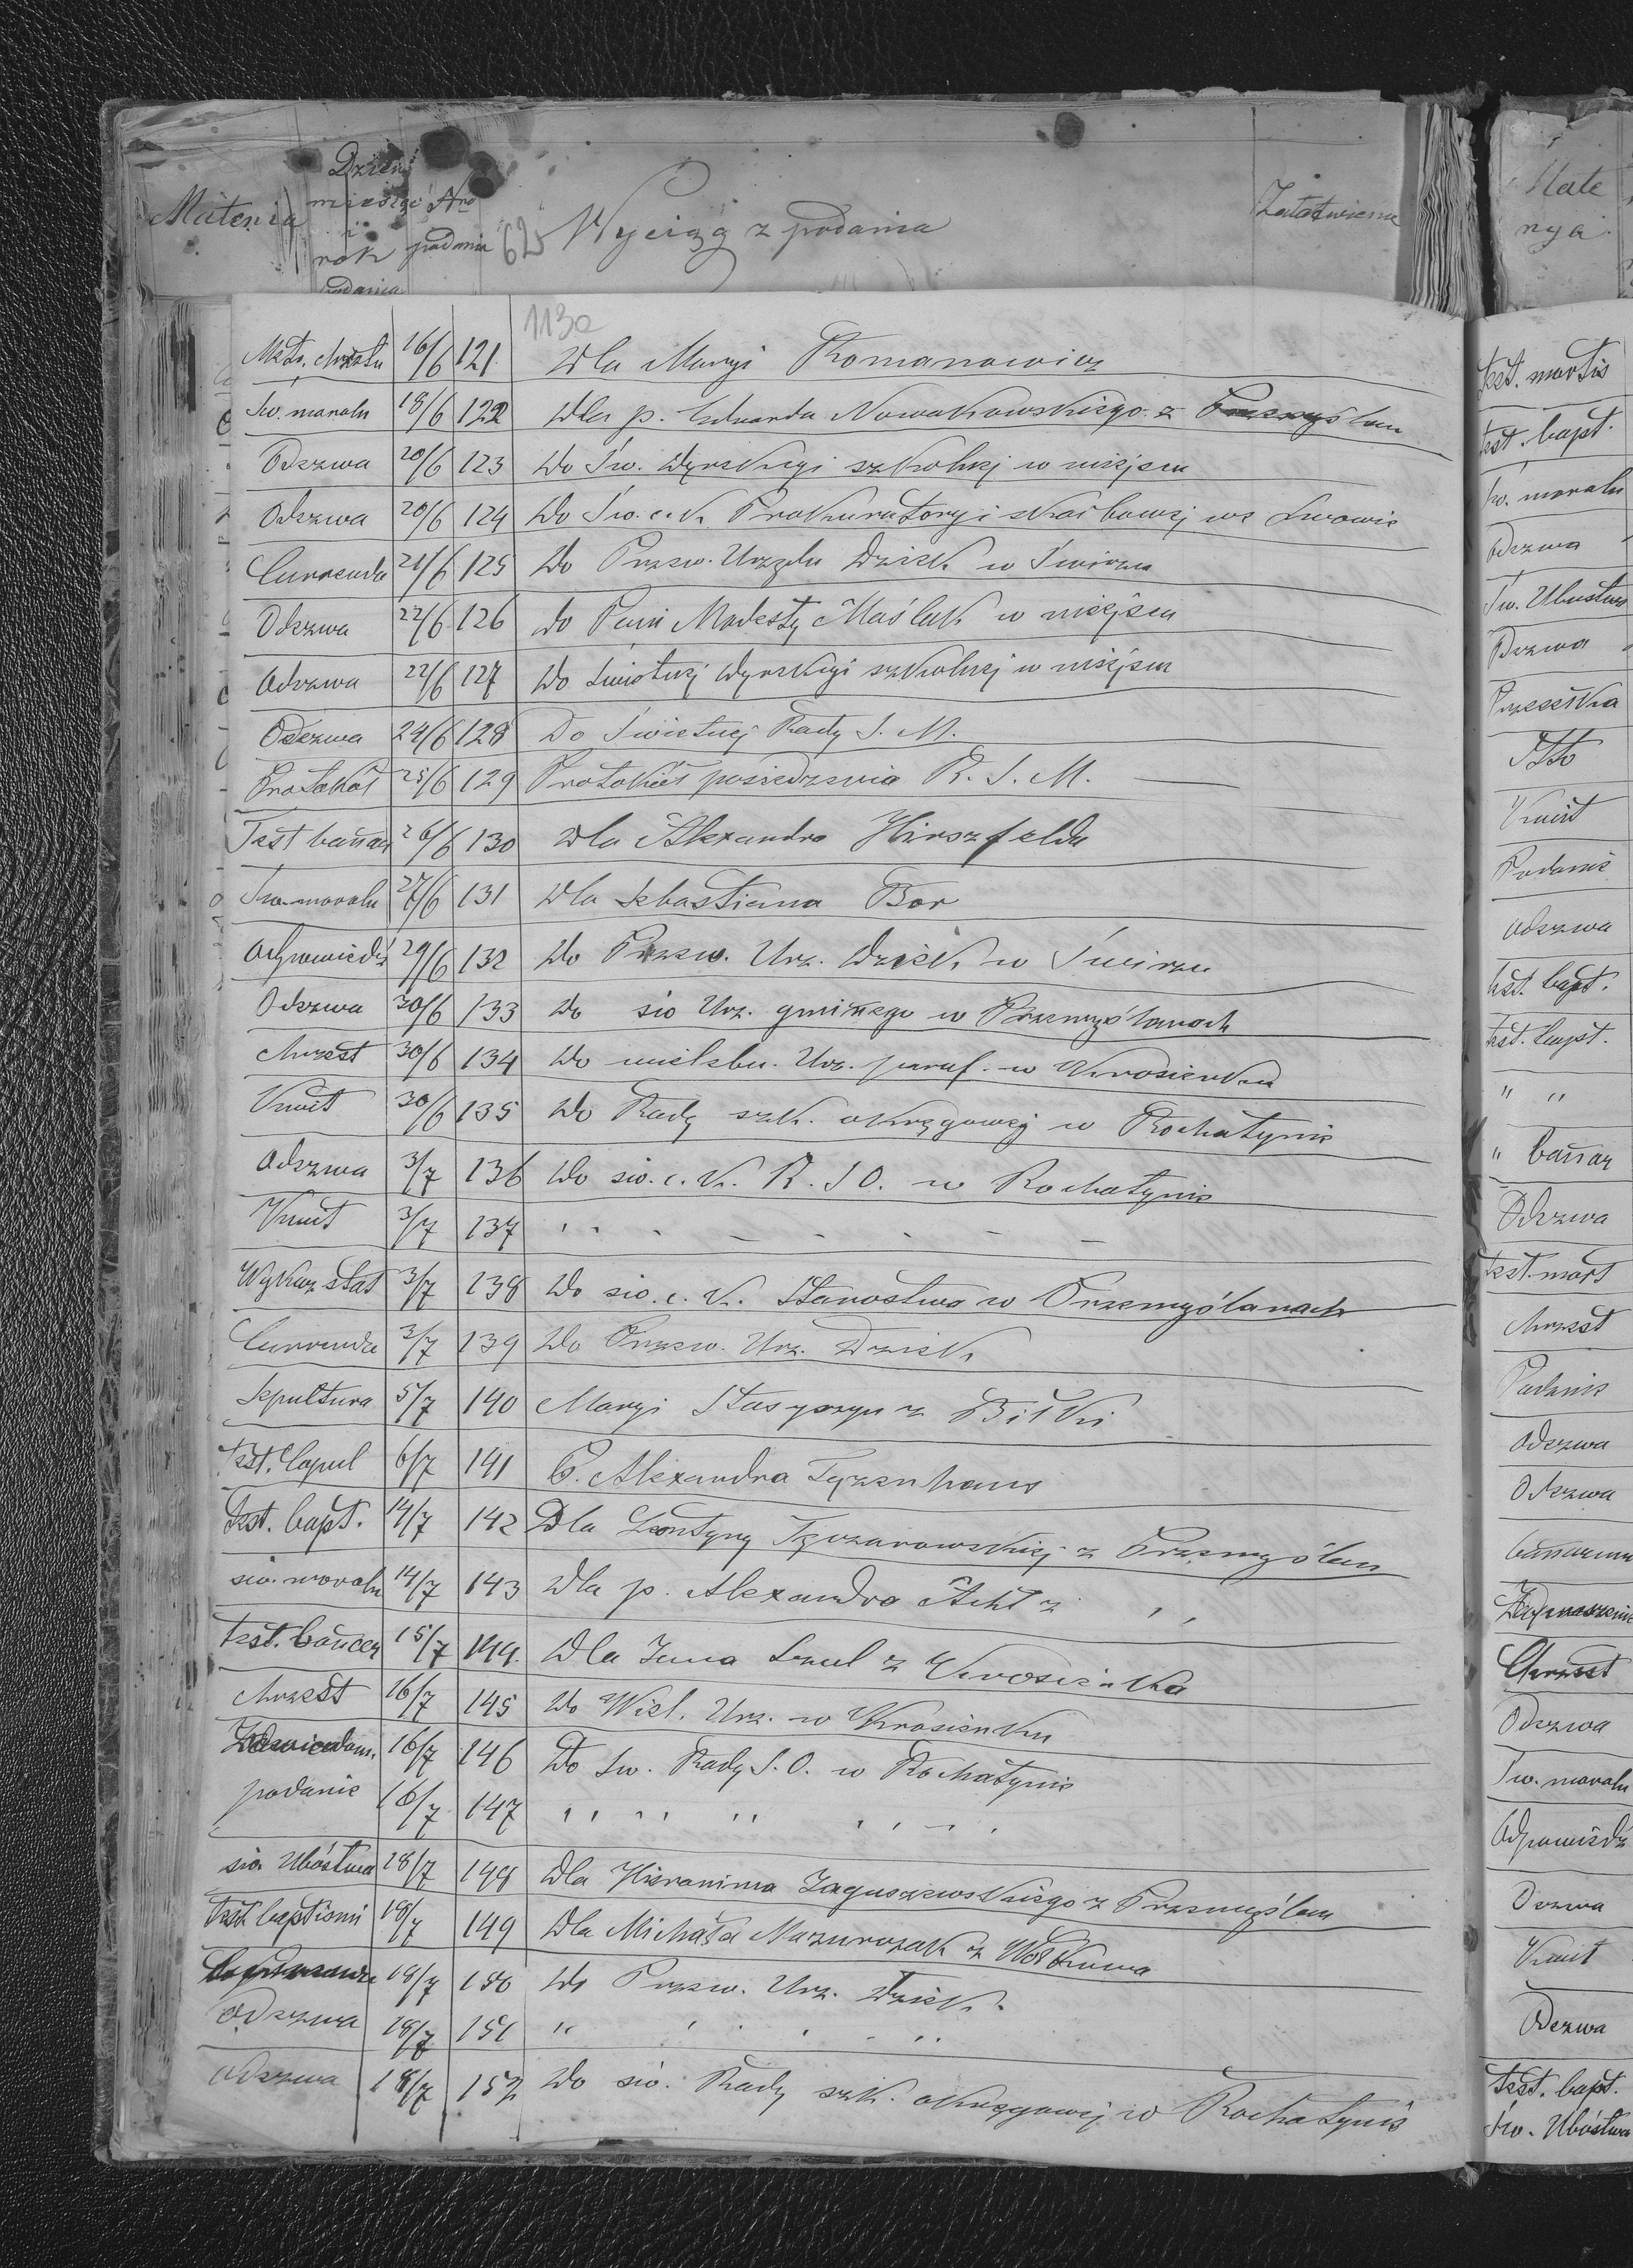 Materia
Dzień
miesiąc
i
rok
podania
Nro
podania
625
Wyciąg z podania
Mate
rya
113a
Metr. chrztu 16/6 121 Dla Maryi Romanowicz
Św. moraln 18/6 122 Dla p. Edwarda Nowakowskiego z Przemyślan
Odezwa 20/6 123 Do Św. Dyrekcyi szkolnej w miejscu
Odezwa 20/6 124 Do Św. c. k. Prokuratoryi skarbowej we Lwowie
Currenda 21/6 125 Do Przew. Urzędu Dziek w Świrzu
Odezwa 22/6 126 do Pani Modesty Maślak w miejscu
Odezwa 22/6 127 Do Świetnej Dyrekcyi szkolnej w miejscu
Odezwa 24/6 128 Do Świetnej Rady S. M.
Protokół 25/6 129 Protokół posiedzenia R. S. M.
Test bannor 26/6 130 Dla Alexandra Hirszfelda
Św. moraln 27/6 131 Dla Sebastiana Bor
Odpowiedź 29/6 132 Do Przew. Urz. Dziek w Świrzu
Odezwa 30/6 133 Do św Urz. gminnego w Przemyślanach
Chrzest 30/6 134 Do wielebn. Urz. paraf. w Krosienku
Kwit 30/6 135 Do Rady szk. okręgowej w Rohatynie
Odezwa 3/7 136 Do św. c. k. R. S O. w Rohatynie
Kwit 3/7 137 " " " " " "
Wykaz stat 3/7 138 Do św. c. k. Starostwa w Przemyślanach
Currenda 3/7 139 Do Przew. Urz. Dziek
Sepultura 5/7 140 Maryi Stasyszyn z Biłki
Test. Copul 6/7 141 P. Alexandra Tyzenhaus
Test. bapt. 14/7 142 Dla Leontyny z Przemyślan
św. moraln 14/7 143 Dla p. Alexandra Acht z " "
Test. bannor 15/7 144 Dla Jana Szul z Krosienka
Chrzest 16/7 145 Do Wiel. Urz. w Krosienku
Zawiadom. 16/7 146 Do Św. Rady S. O. w Rohatynie
podanie 16/7 147 " " " " "
św. Ubóstwa 18/7 148 Dla Hieronima Jaguszewskiego z Przemyślan
Test baptismi 18/7 149 Dla Michała Mazurczak z Wołkowa
18/7 150 Do Przew. Urz. Dziek.
Odezwa 18/7 151 " " " "
Odezwa 18/7 152 Do św. Rady szk. okręgowej w Rohatynie
test. mortis
test. bapt.
Św. moraln
Odezwa
Św. Ubóstwa
Odezwa
Przesyłka
Kwit
Podanie
Odezwa
test. bapt.
test. bapt.
" "
" bannor
Odezwa
test. mort
Chrzest
Podanie
Odezwa
Odezwa
Chrzest
Odezwa
Św. moraln
Odpowiedź
Odezwa
Kwit
Odezwa
test. bapt.
Św. Ubóstwa